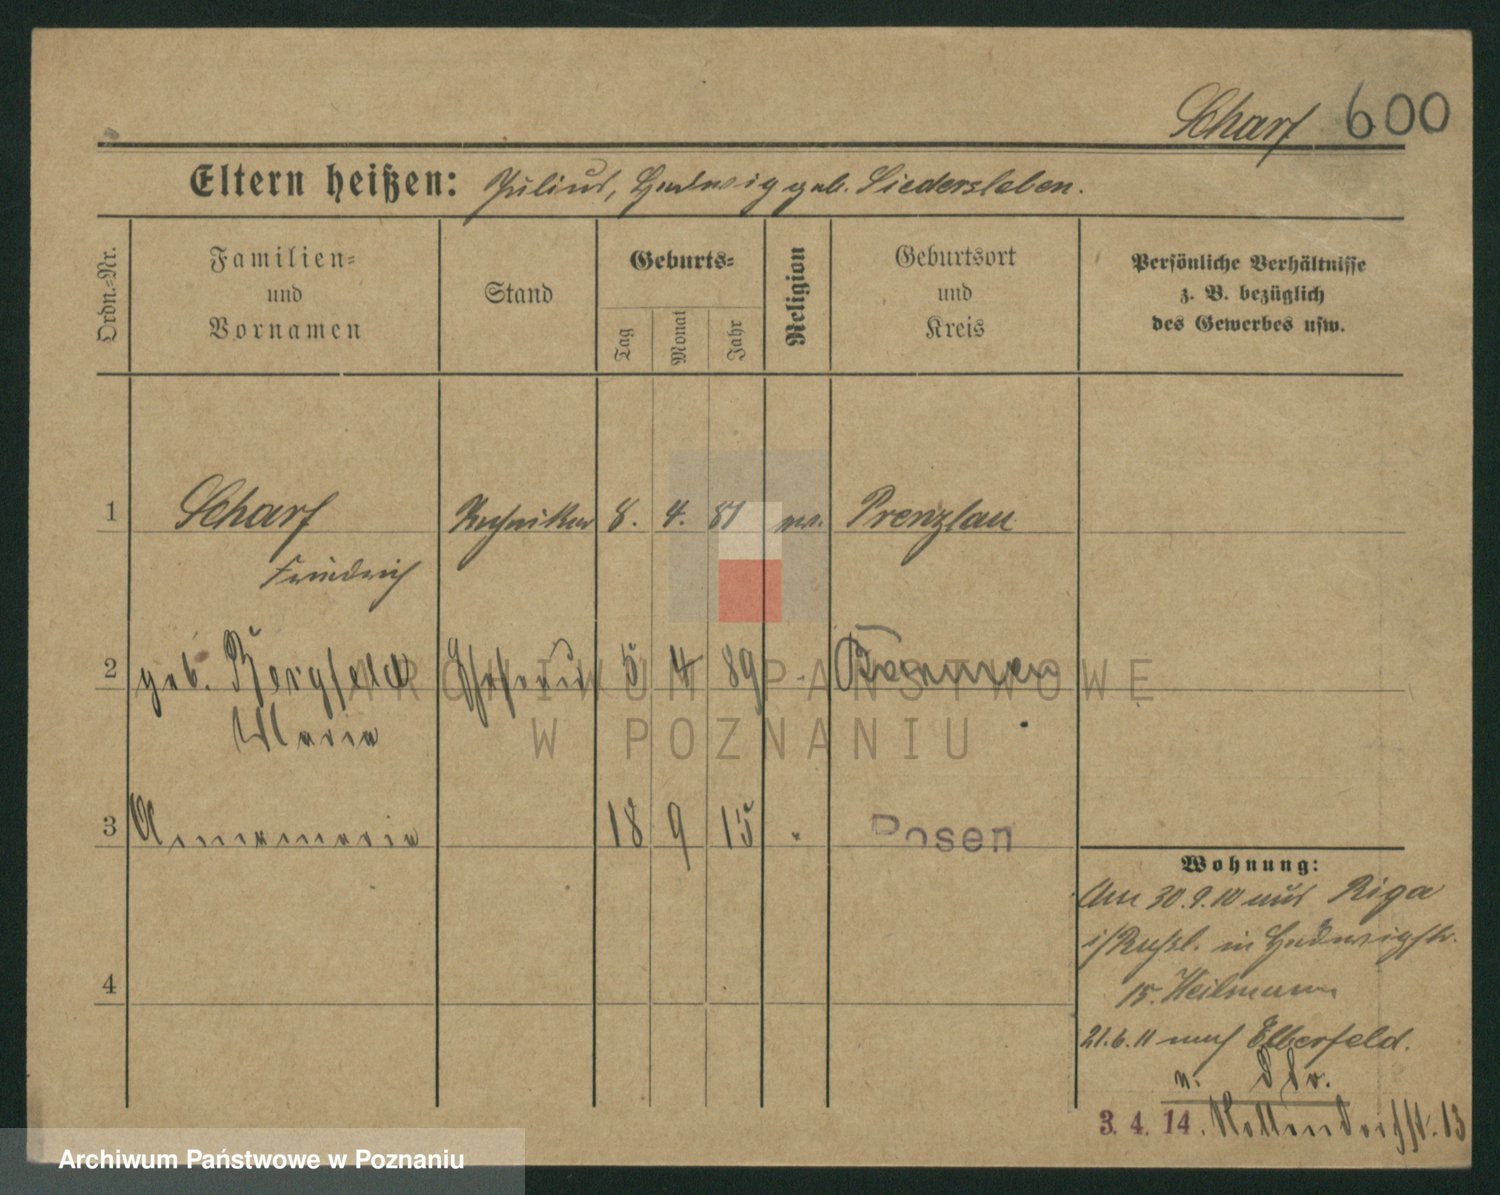 Scharf 600
Eltern heißen: Julius, Hedwig geb. Siedersleben.
Ordn.-Nr.
Familien-
und
Vornamen
Stand
Geburts-
Tag
Monat
Jahr
Religion
Geburtsort
und
Kreis
Persönliche Verhältnisse
z. B. bezüglich
des Gewerbes usw.
1 Scharf Techniker 8. 4. 81 ev. Prenzlau
Friedrich
2 geb. Bergfeld Ehefrau 5 4 89
Maria
3 Annemarie 18 9 15 " Posen
4
Wohnung:
Am 30.9.10 aus Riga
i/Rußl. in Hedwigstr.
15. Heilmann
21.6.11 nach Elberfeld.
v. dto.
3. 4. 14. 13
ARCHIWUM PAŃSTWOWE
W POZNANIU
Archiwum Państwowe w Poznaniu